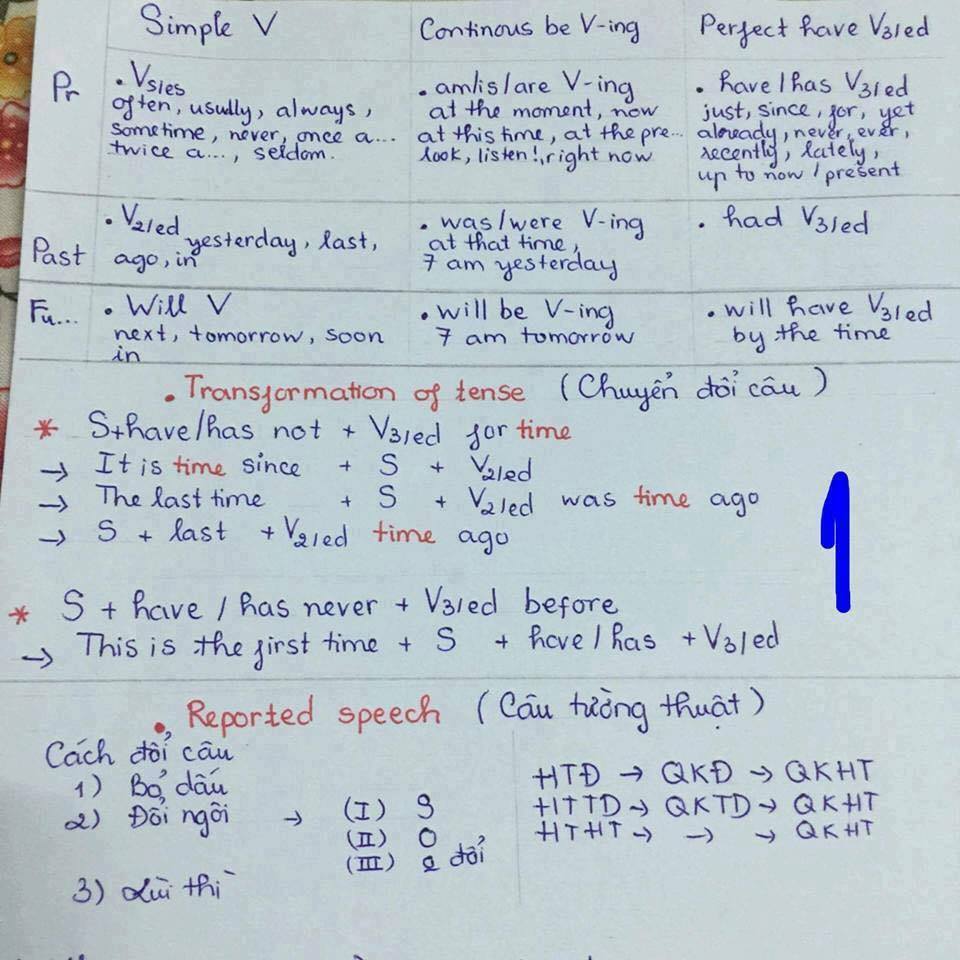 Simple V
Continous be V-ing
Perfect have V3/ed
Pr
• Vs/es
often, usully, always,
sometime, never, once a...
twice a..., seldom.
• am/is/are V-ing
at the moment, now
at this time, at the pre...
look, listen!, right now
• have/has V3/ed
just, since, for, yet
already, never, ever,
recently, lately,
up to now / present
Past
• V2/ed
yesterday, last,
ago, in
• was/were V-ing
at that time,
7 am yesterday
• had V3/ed
Fu...
• Will V
next, tomorrow, soon
in
• will be V-ing
7 am tomorrow
• will have V3/ed
by the time
• Transformation of tense (Chuyển đổi câu)
* S+have/has not + V3/ed for time
→ It is time since + S + V2/ed
→ The last time + S + V2/ed was time ago
→ S + last + V2/ed time ago
1
* S + have / has never + V3/ed before
→ This is the first time + S + have / has + V3/ed
• Reported speech (Câu tường thuật)
Cách đổi câu
1) Bỏ dấu
2) Đổi ngôi → (I) S
(II) O
(III) đổi
3) Lùi thì
HTĐ → QKĐ → QKHT
HTTD → QKTD → QKHT
HTHT → → → QKHT